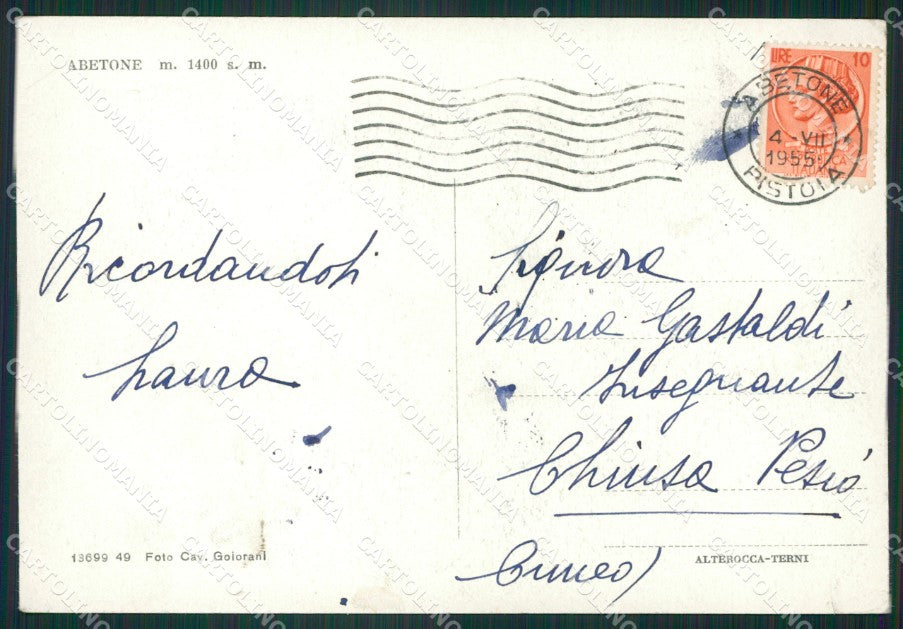 ABETONE m. 1400 s. m.
LIRE 10
ABETONE
4-VII
1955
PISTOIA
Ricordandoti
Laura
Signora
Maria Gastaldi
Insegnante
Chiusa Pesio
Cuneo)
13699 49 Foto Cav. Goiorani
ALTEROCCA-TERNI
CARTOLINOMANIA